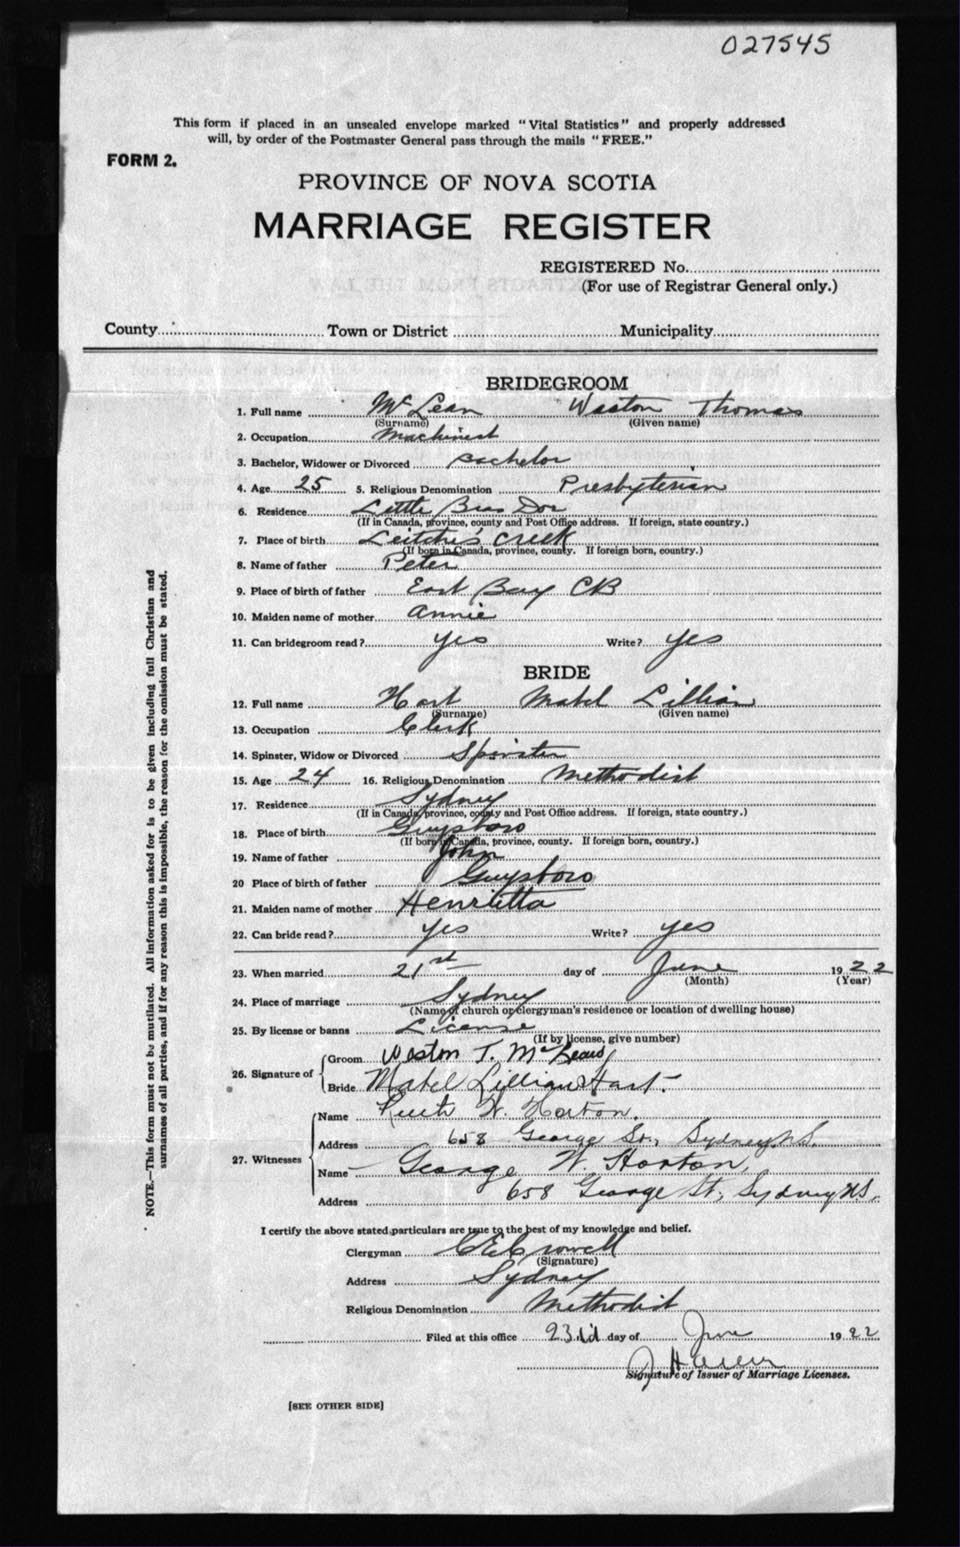 027545
This form if placed in an unsealed envelope marked "Vital Statistics" and properly addressed
will, by order of the Postmaster General pass through the mails "FREE."
FORM 2.
PROVINCE OF NOVA SCOTIA
MARRIAGE REGISTER
REGISTERED No.
(For use of Registrar General only.)
County Town or District Municipality
BRIDEGROOM
1. Full name McLean Weston Thomas
(Surname) (Given name)
2. Occupation Machinist
3. Bachelor, Widower or Divorced Bachelor
4. Age 25 5. Religious Denomination Presbyterian
6. Residence Little Bras Dor
(If in Canada, province, county and Post Office address. If foreign, state country.)
7. Place of birth Leitches Creek
(If born in Canada, province, county. If foreign born, country.)
8. Name of father Peter
9. Place of birth of father East Bay CB
10. Maiden name of mother Annie
11. Can bridegroom read? yes Write? yes
BRIDE
12. Full name Hart Mabel Lillian
(Surname) (Given name)
13. Occupation Clerk
14. Spinster, Widow or Divorced Spinster
15. Age 24 16. Religious Denomination Methodist
17. Residence Sydney
(If in Canada, province, county and Post Office address. If foreign, state country.)
18. Place of birth Guysboro
(If born in Canada, province, county. If foreign born, country.)
19. Name of father John
20 Place of birth of father Guysboro
21. Maiden name of mother Henrietta
22. Can bride read? yes Write? yes
23. When married 21st day of June 1922
(Month) (Year)
24. Place of marriage Sydney
(Name of church or clergyman's residence or location of dwelling house)
25. By license or banns License
(If by license, give number)
26. Signature of Groom Weston T. McLean
Bride Mabel Lillian Hart.
27. Witnesses Name Ruth W. Horton.
Address 658 George St., Sydney N.S.
Name George W. Horton,
Address 658 George St, Sydney N.S.
I certify the above stated particulars are true to the best of my knowledge and belief.
Clergyman C E Crowell
(Signature)
Address Sydney
Religious Denomination Methodist
Filed at this office 23rd day of June 1922
J H
Signature of Issuer of Marriage Licenses.
[SEE OTHER SIDE]
NOTE.—This form must not be mutilated. All information asked for is to be given including full Christian and
surnames of all parties, and if for any reason this is impossible, the reason for the omission must be stated.